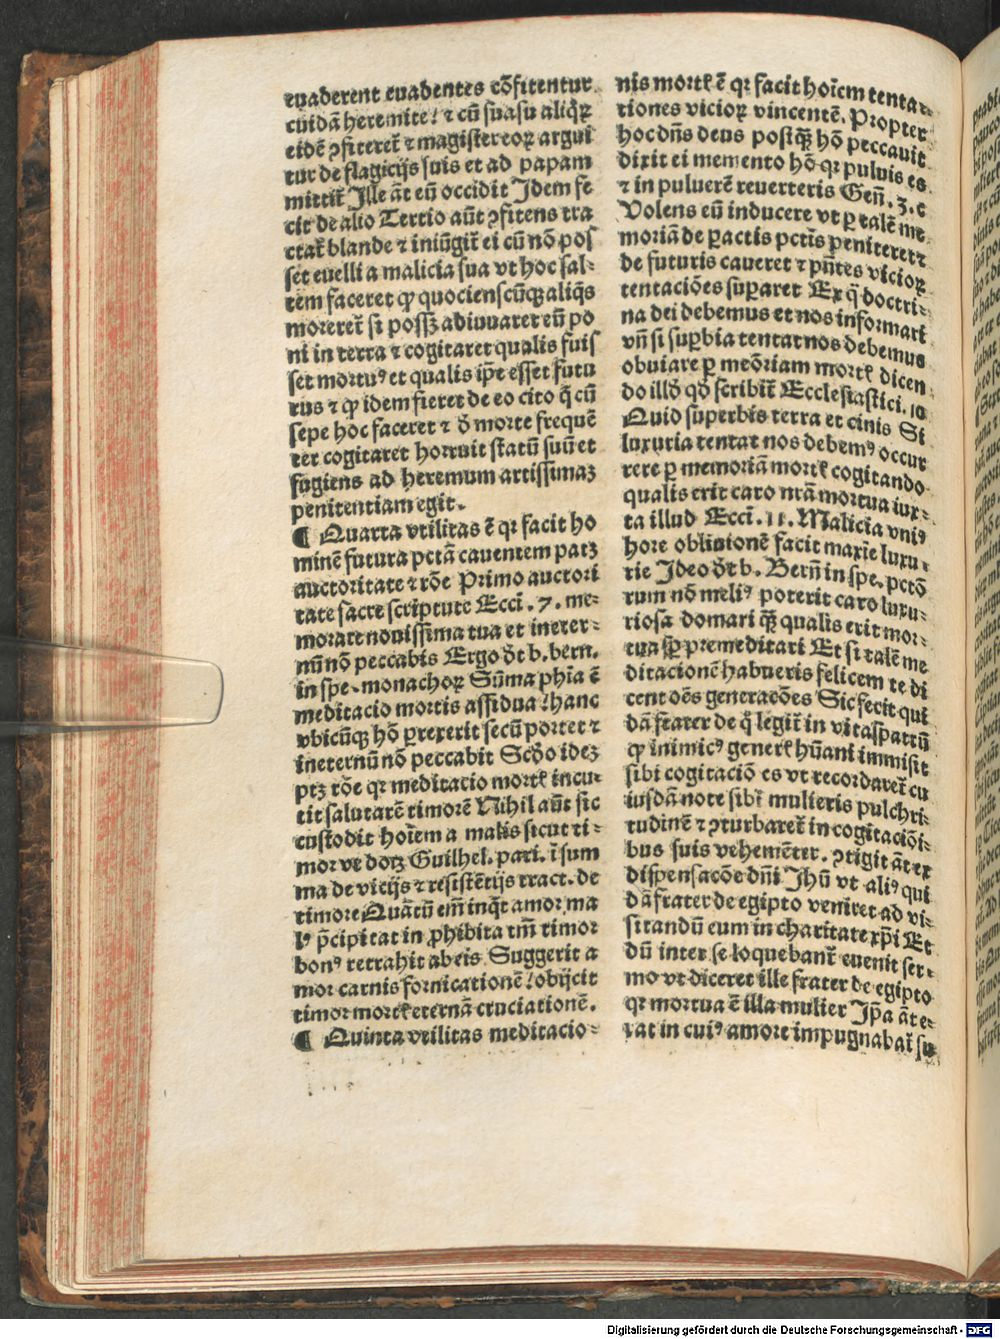 euaderent euadentes cōfitentur
cuidā heremite / ⁊ cū suasu aliqꝝ
eidē ꝯfiteret᷑ ⁊ magister eoꝝ argui
tur de flagicijs suis et ad papam
mittit᷑ Ille āt eū occidit Idem fe
cit de alio Tertio aūt ꝯfitens tra
ctat᷑ blande ⁊ iniūgit᷑ ei cū nō pos
set euelli a malicia sua vt hoc sal⸗
tem faceret ꝙ quocienscūqꝫ aliq̄s
moreret᷑ si possꝫ adiuuaret eū po
ni in terra ⁊ cogitaret qualis fuis
set mortuꝰ et qualis ip̄e esset futu
rus ⁊ ꝙ idem fieret de eo cito q̄ cū
sepe hoc faceret ⁊ d̄ morte frequē
ter cogitaret horruit statū suū et
fugiens ad heremum artissimaꝫ
penitentiam egit.
¶ Quarta vtilitas ē qꝛ facit ho
minē futura pctā cauentem patꝫ
auctoritate ⁊ rōe Primo auctori
tate sacre scripture Ecci. 7. me⸗
morare nouissima tua et in eter⸗
nū nō peccabis Ergo d̄t b. bern.
in spe. monachoꝝ Sūma ph̄ia ē
meditacio mortis assidua / hanc
vbicūqꝫ hō ꝑrexerit secū portet ⁊
in eternū nō peccabit Scd̄o ideꝫ
ptꝫ rōe qꝛ meditacio mort᷑ incu⸗
tit salutarē timorē Nihil aūt sic
custodit hoīem a malis sicut ti⸗
mor vt docꝫ Guilhel. pari. ī sum
ma de vicijs ⁊ resistētijs tract. de
timore Quātū em̄ inq̄t amor ma
lꝰ p̄cipitat in ꝓhibita tm̄ timor
bonꝰ retrahit ab eis Suggerit a
mor carnis fornicationē / obijcit
timor mort᷑ eternā cruciationē.
¶ Quinta vtilitas meditacio⸗
nis mort᷑ ē qꝛ facit hoīem tenta⸗
tiones vicioꝝ vincentē. Propter
hoc dn̄s deus postqꝫ̄ hō peccauit
dixit ei memento hō qꝛ puluis es
⁊ in puluerē reuerteris Geñ. 3. c
Volens eū inducere vt ꝑ talē me
moriā de ꝑactis pctīs peniteret ⁊
de futuris caueret ⁊ pn̄tes vicioꝝ
tentaciōes suꝑaret Ex q̄ doctri⸗
na dei debemus et nos informari
vn̄ si suꝑbia tentat nos debemus
obuiare ꝑ meōriam mort᷑ dicen
do illd̄ qd̄ scribit᷑ Ecclesiastici. 10
Quid superbis terra et cinis Si
luxuria tentat nos debemꝰ occur
rere ꝑ memoriā mort᷑ cogitando
qualis erit caro nrā mortua iux⸗
ta illud Ecci. 11. Malicia vniꝰ
hore obliuionē facit maxīe luxu⸗
rie Ideo d̄t b. Berñ in spe. pctō
rum nō meliꝰ poterit caro luxu⸗
riosa domari qꝫ̄ qualis erit mor⸗
tua sꝑ premeditari Et si talē me
ditacionē habueris felicem te di
cent oēs generacōes Sic fecit qui
dā frater de q̄ legit᷑ in vitaspatrū
ꝙ inimicꝰ gener᷑ hūani immisit
sibi cogitaciōes vt recordaret᷑ cu
iusdā note sibi mulieris pulchri⸗
tudinē ⁊ ꝯturbaret᷑ in cogitaciōi⸗
bus suis vehemēter. ꝯtigit āt ex
dispensacōe dn̄i Jhū vt aliꝰ qui
dā frater de egipto veniret ad vi⸗
sitandū eum in charitate xp̄i Et
dū inter se loquebant᷑ euenit ser⸗
mo vt diceret ille frater de egipto
qꝛ mortua ē illa mulier Ip̄a āt e⸗
rat in cuiꝰ amore impugnabat᷑ su
Digitalisierung gefördert durch die Deutsche Forschungsgemeinschaft - DFG